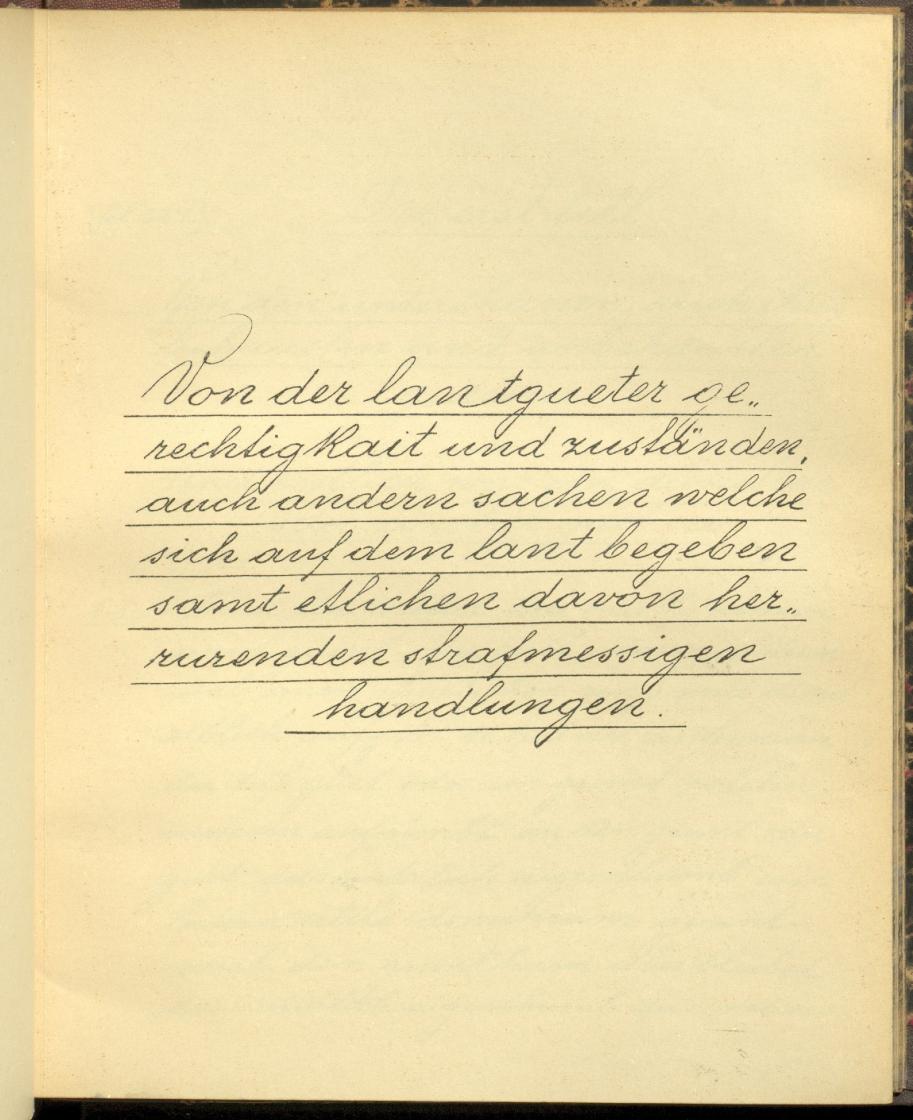 Von der lantgueter ge„
rechtigkait und zuständen,
auch andern sachen welche
sich auf dem lant begeben
samt etlichen davon her„
rurenden strafmessigen
handlungen.